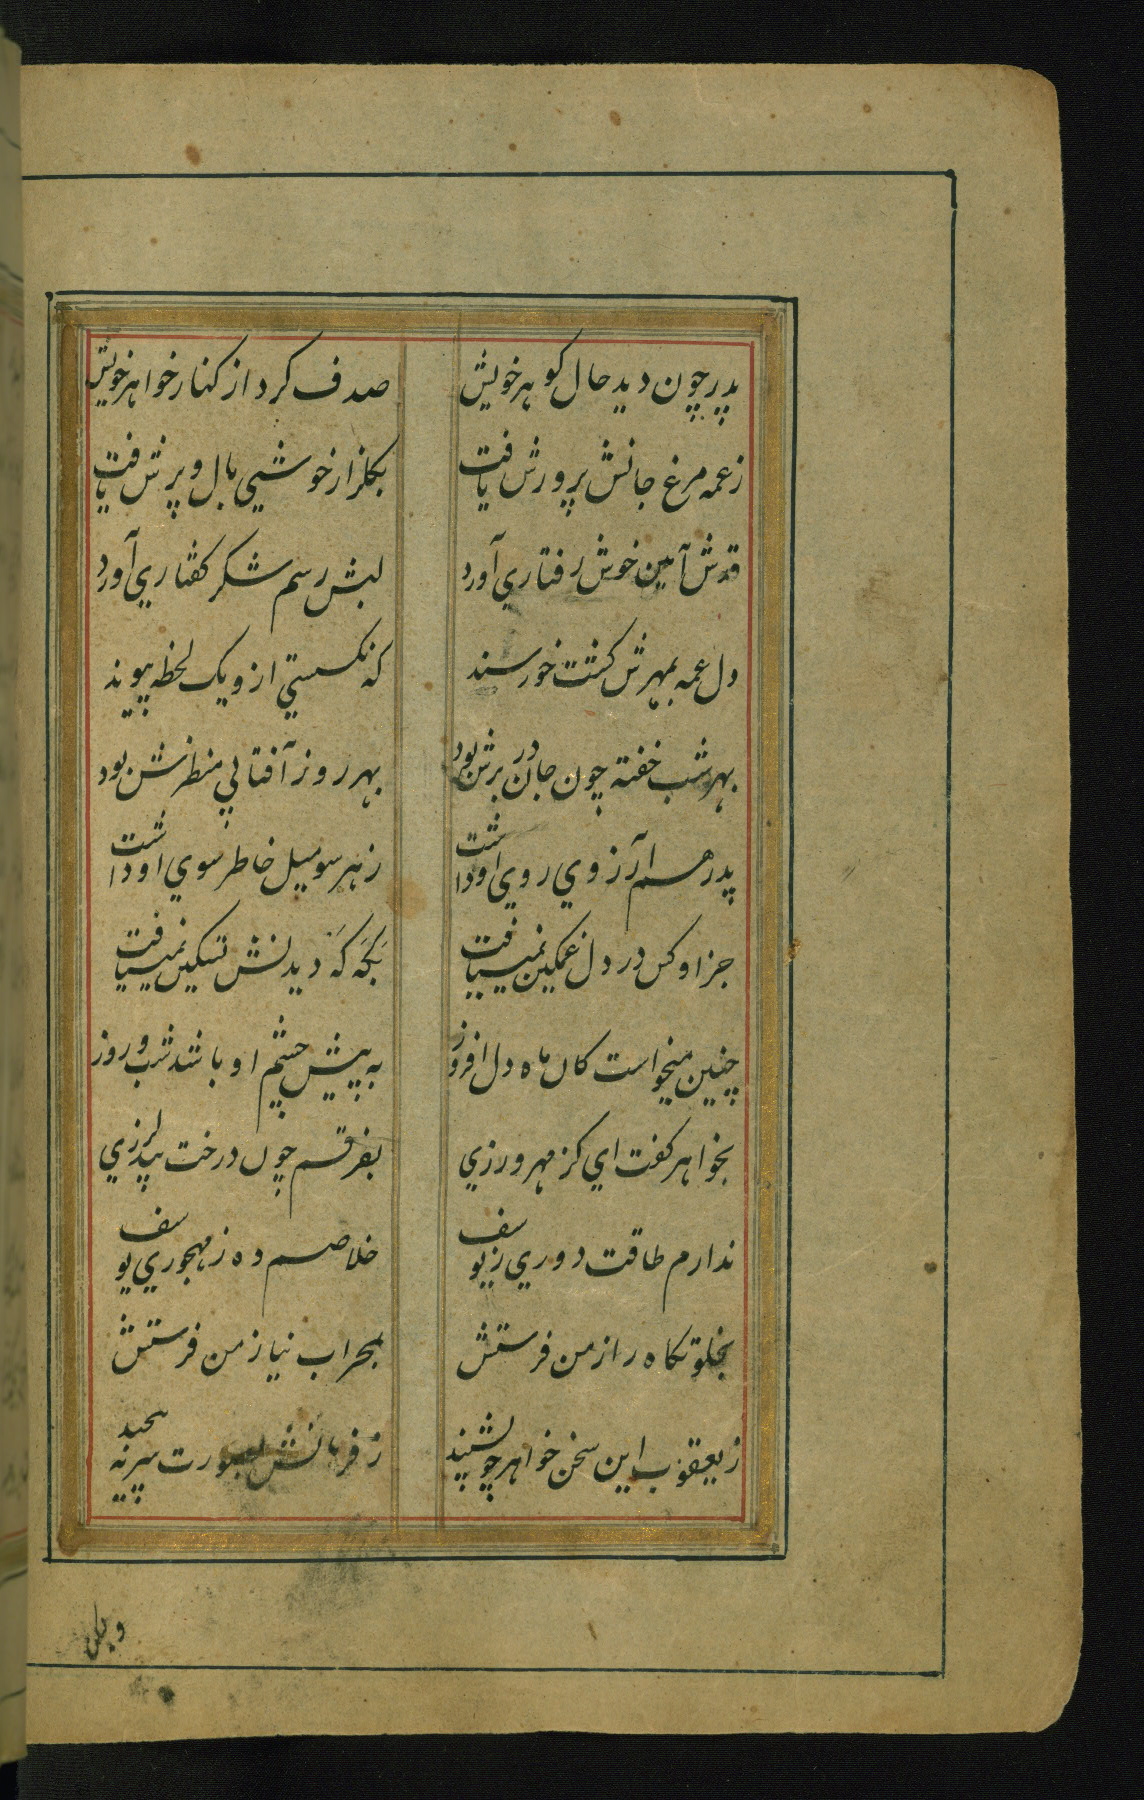 پدر چون دید حال کوهر خویش صدف کرد از کنار خواهر خویش
ز عمه مرغ جانش پرورش یافت بکلزار خوشیی بال و پرش یافت
قدش آیین خوش رفتاری آورد لبش رسم شکر کفتاری آورد
دل عمه بمهرش کشت خورسند که نکسستی ازو یک لحظه پیوند
بهر شب خفته چون جان در برش بود بهر روز آفتابی منظرش بود
پدر هم آرزوی روی او داشت ز هر سو میل خاطر سوی او داشت
جز او کس در دل غمکین نمییافت بکه که دیدنش تسکین نمییافت
چنین میخواست کان ماه دل افروز به پیش چشم او باشد شب و روز
بخواهر کفت ای کز مهرورزی بفرقم چون درخت بید لرزی
ندارم طاقت دوری ز یوسف خلاصم ده ز مهجوری یوسف
بخلوتکاه راز من فرستش بمحراب نیاز من فرستش
ز یعقوب این سخن خواهر چو بشنید ز فرمانش بصورت سر نپیچید